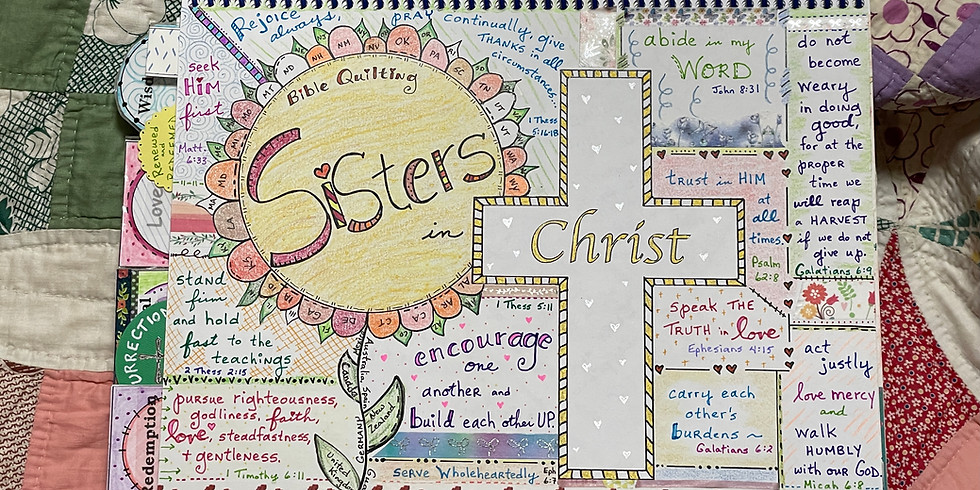 Rejoice
always,
PRAY continually, give
THANKS in all
circumstances...
1 Thess
5:16-18
seek
HiM
first
Matt.
6:33
Wis
Renewed
and
REDEEMED
Love
URRECTION
Redemption
Bible Quilting
Sisters
in
Christ
ND
NE
NH
NM
NV
OK
OR
PA
SC
SD
TN
UT
VT
WA
WV
MT
MD
LA
CT
DE
CA
FL
stand
firm
and hold
fast to the
teachings
2 Thess 2:15
pursue righteousness,
godliness, faith,
love, steadfastness,
+ gentleness.
1 Timothy 6:11
Canada
Australia
Spain
GERMANY
New
Zealand
United
Kingdom
1 Thess 5:11
encourage
one
another and
build each other UP.
serve Wholeheartedly Eph
6:7
abide in my
WORD
John 8:31
trust in HIM
at
all
times.
Psalm
62:8
speak THE
TRUTH in love
Ephesians 4:15
carry each
other's
burdens ~
Galatians 6:2
do not
become
weary
in doing
good,
for at the
proper
time we
will reap
a HARVEST
if we do not
give up.
Galatians 6:9
act
justly
love mercy
and
walk
HUMBLY
with our GOD.
Micah 6:8